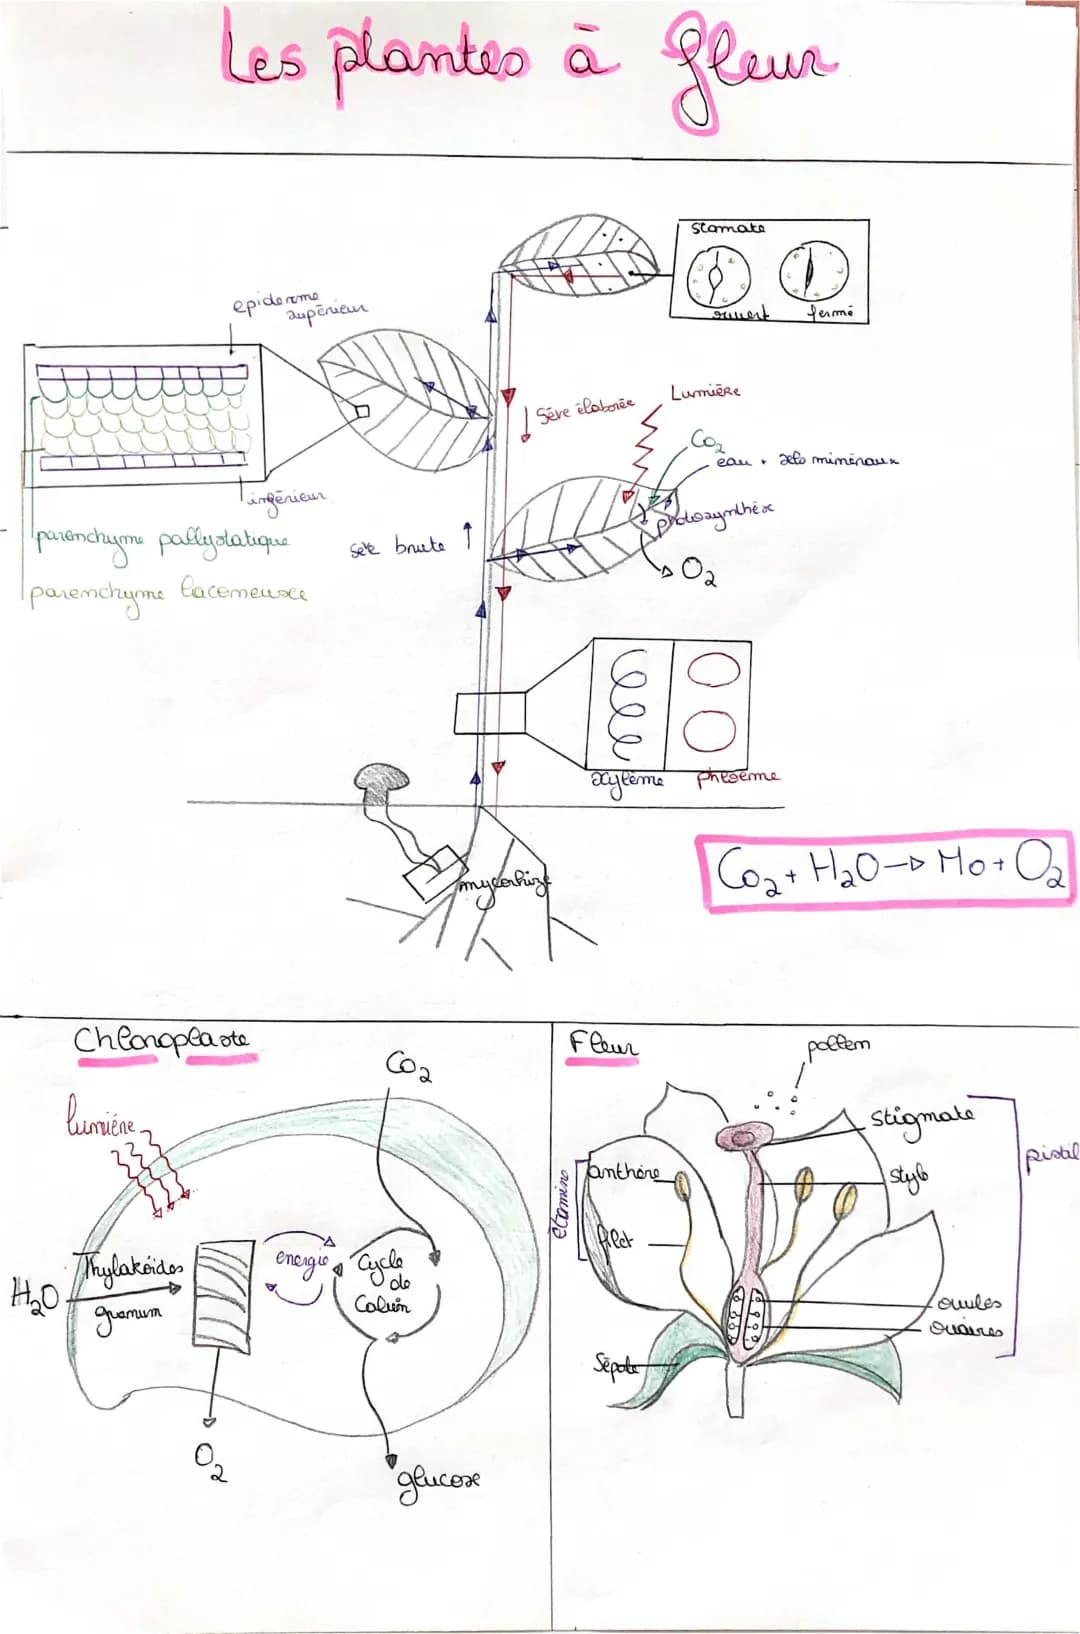 Les plantes à fleur
stomate
ouvert
fermé
epiderme
supérieur
inférieur
parenchyme pallysatique
parenchyme lacemeuse
Sève élaborée
Lumière
Co2
eau + sels minéraux
photosynthèse
O2
sève brute
xylème
phloème
mycorhize
Co2 + H2O → Mo + O2
Chloroplaste
lumière
CO2
H2O
Thylakoïdes
granum
energie
Cycle
de
Calvin
O2
glucose
Fleur
pollen
stigmate
style
pistil
anthère
étamine
filet
ovules
ovaires
Sépale